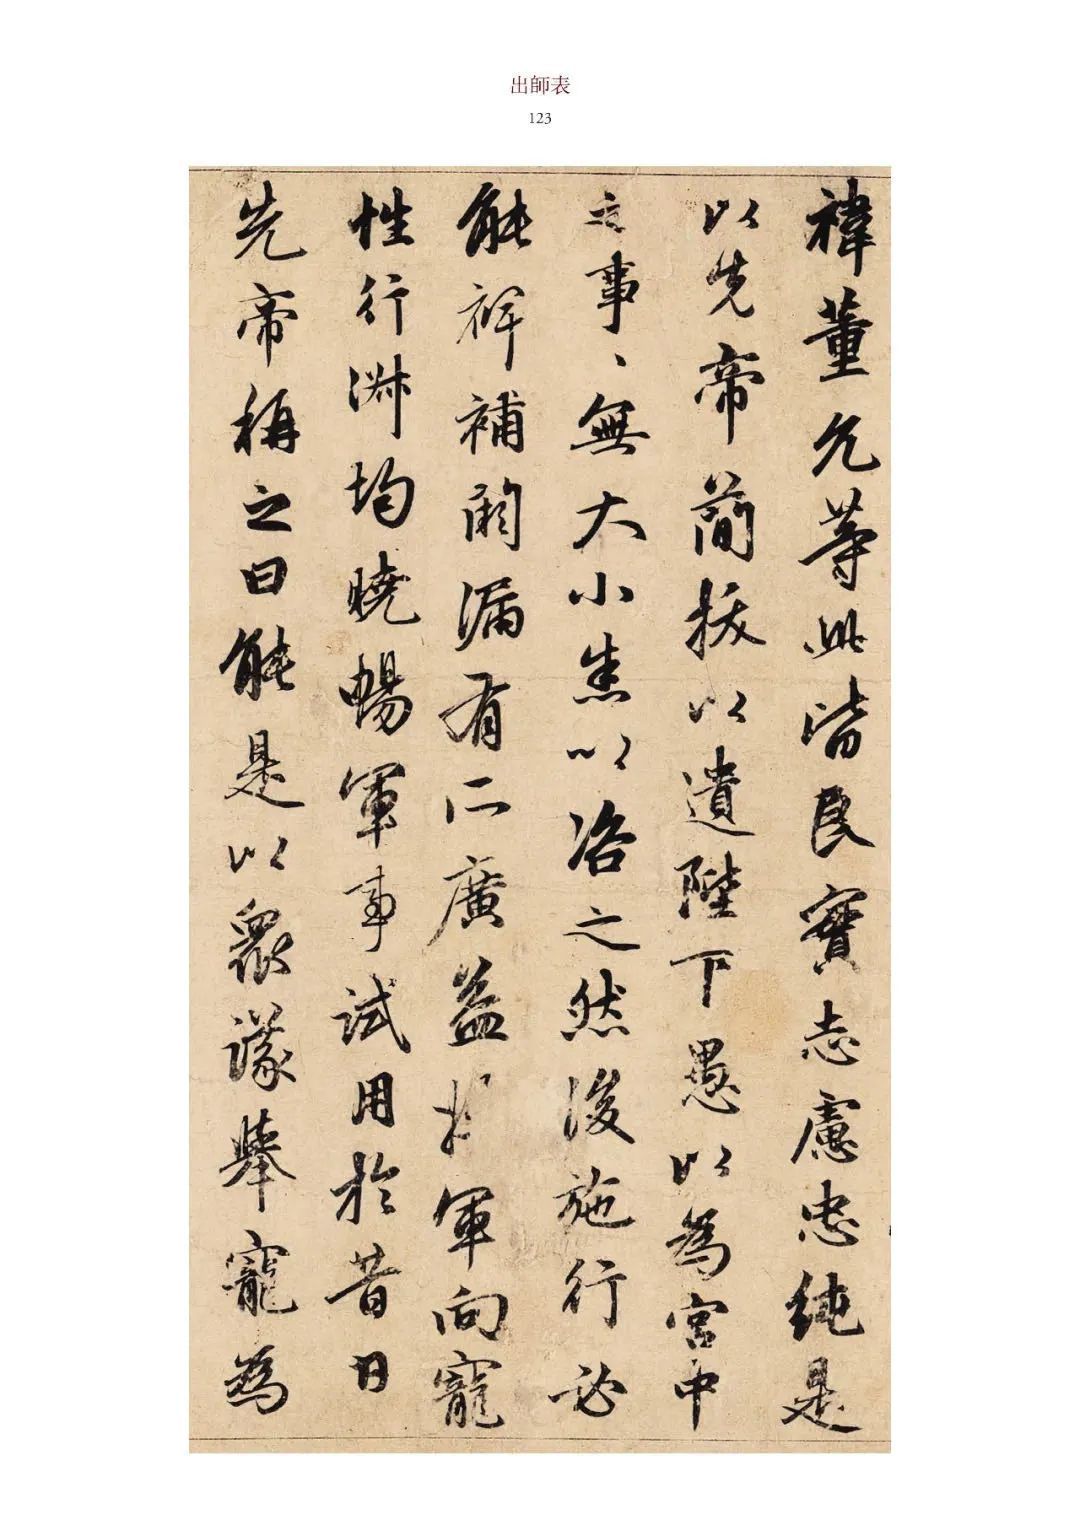 出師表
123
禕董允等此皆良實志慮忠純是
以先帝簡拔以遺陛下愚以為宮中
之事、無大小悉以咨之然後施行必
能裨補闕漏有所廣益將軍向寵
性行淑均曉暢軍事試用於昔日
先帝稱之曰能是以眾議舉寵為